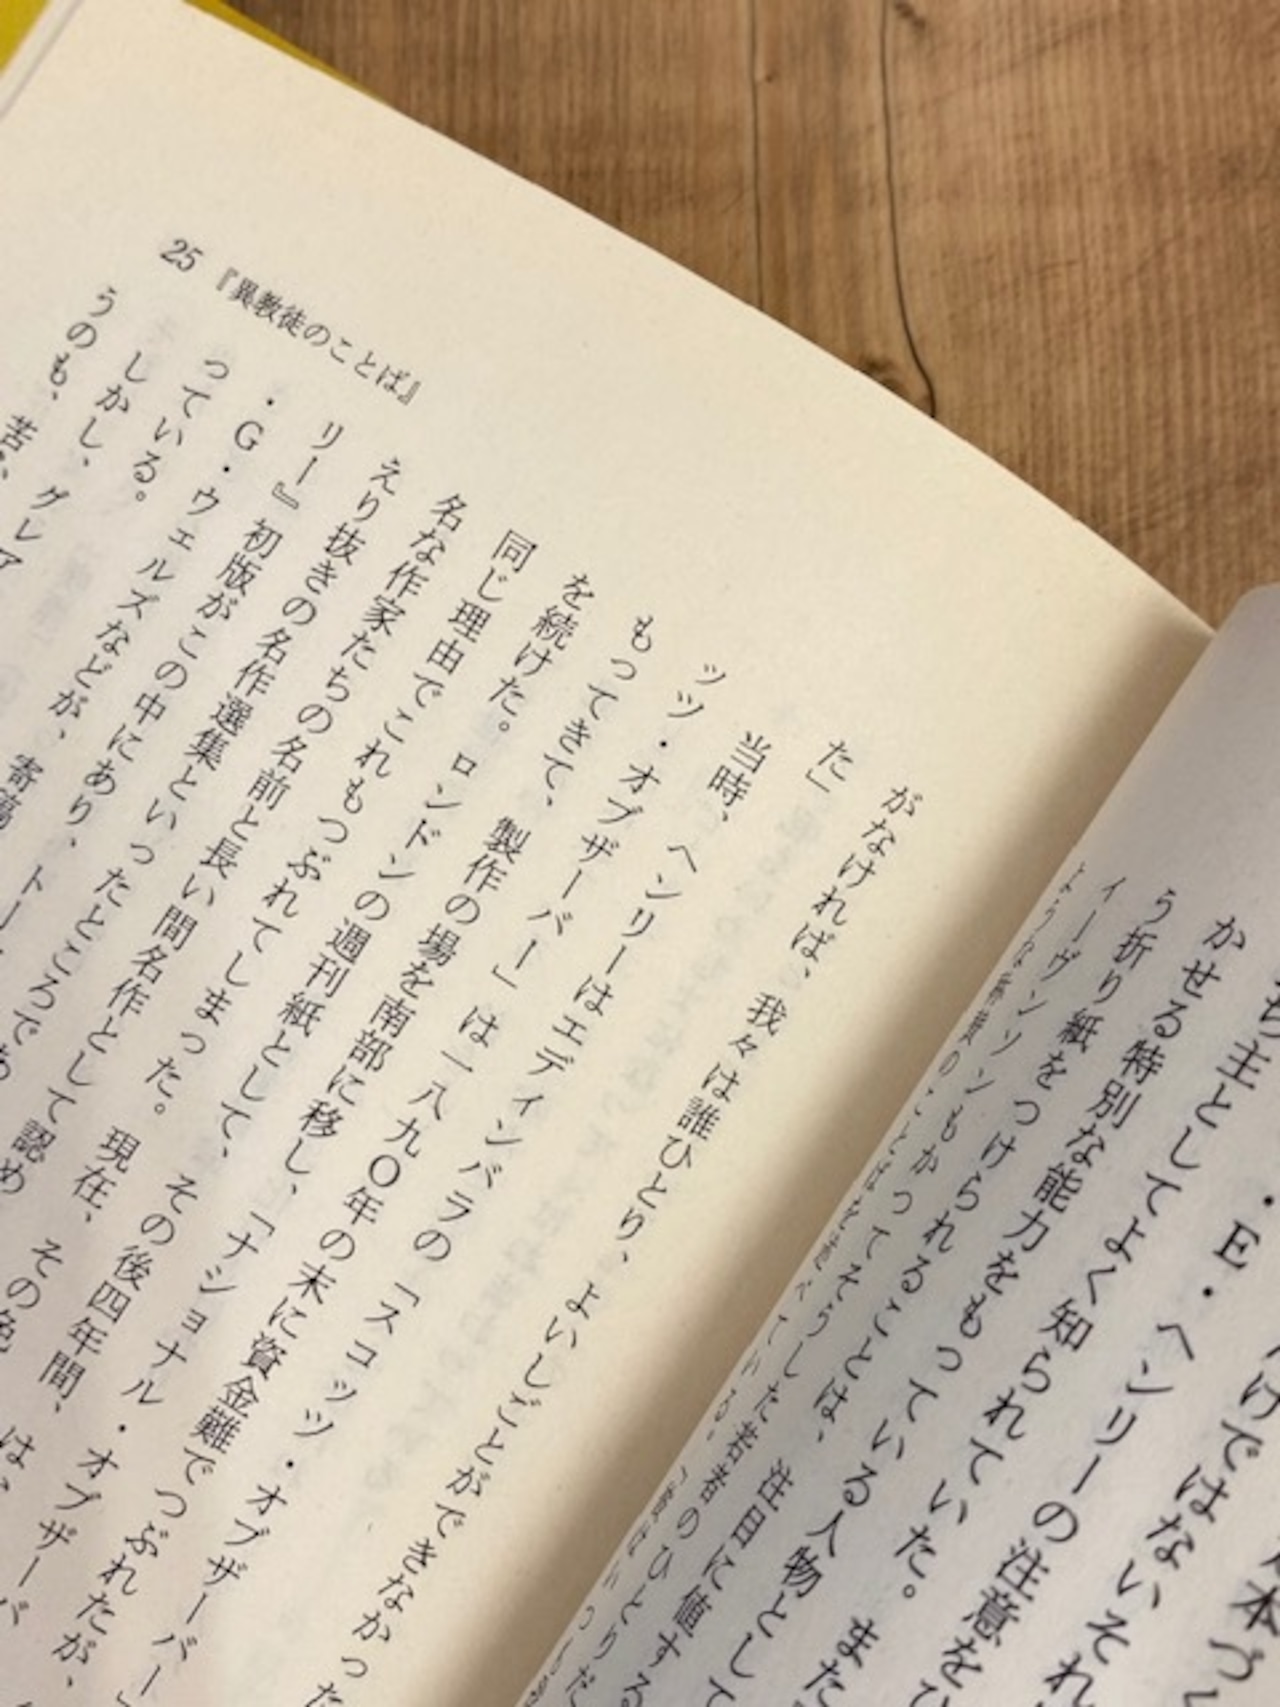 本づ
けではないそれ
・E・ヘンリーの注意をひ
ち主としてよく知られていた。また
かせる特別な能力をもっている人物として
う折り紙をつけられることは、注目に値する
ィーヴンソンもかつてそうした若者のひとりだ
25 『異教徒のことば』
がなければ、我々は誰ひとり、よいしごとができなかった
た」
当時、ヘンリーはエディンバラの「スコッツ・オブザーバー」
ッツ・オブザーバー」は一八九〇年の末に資金難でつぶれたが、
もってきて、製作の場を南部に移し、「ナショナル・オブザーバ
を続けた。ロンドンの週刊紙として、その後四年間、は、
同じ理由でこれもつぶれてしまった。現在、その色
名な作家たちの名前と長い間名作として認め
えり抜きの名作選集といったところであ
リー』初版がこの中にあり、トー
・G・ウェルズなどが、寄稿
っている。
しかし、グレア
うのも、苦い